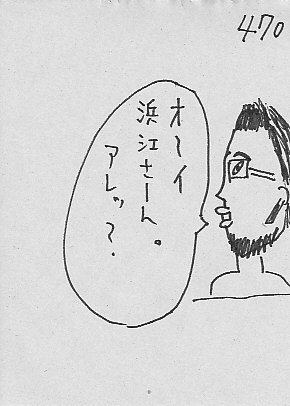 470
オーイ
浜江さーん。
アレッ?